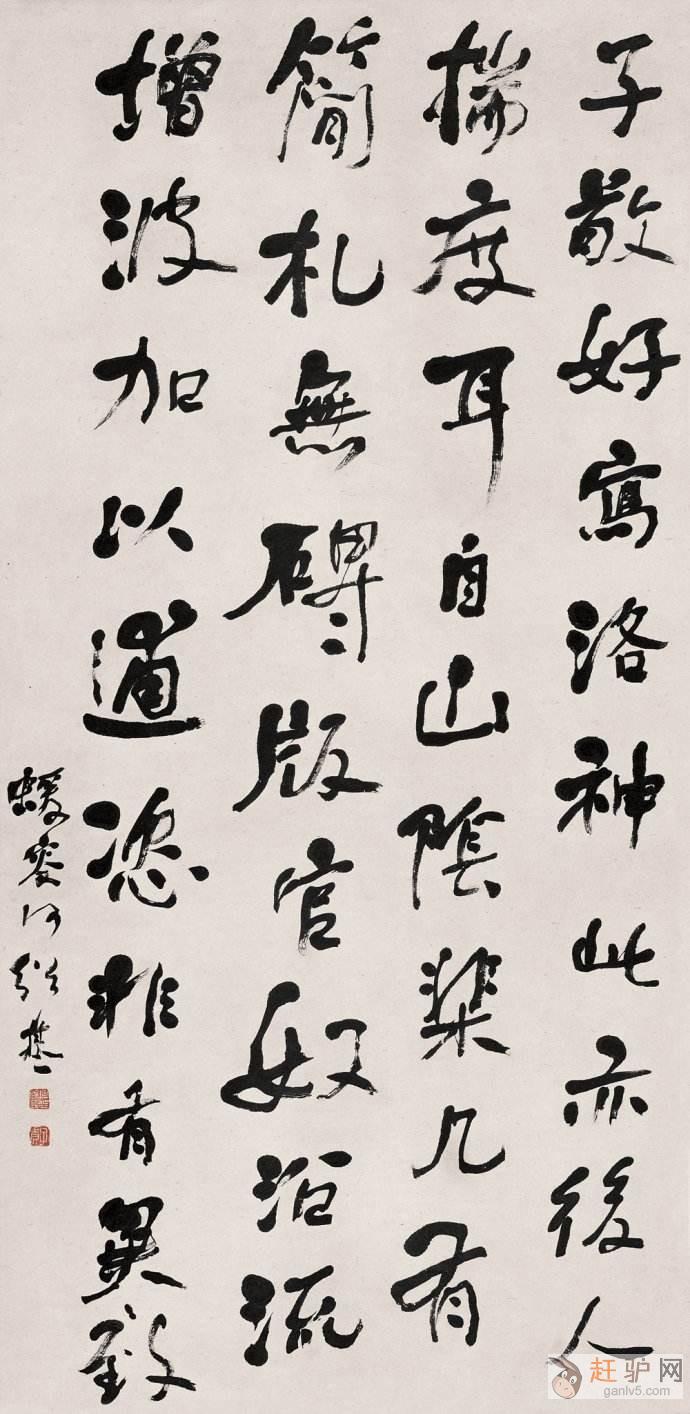 子敬好寫洛神此亦後人
揣度耳自山陰棐几有
簡札無碍版官奴沿流
增波加以遒恣雅有異致
蝯叟何紹基
赶驴网
ganlv5.com